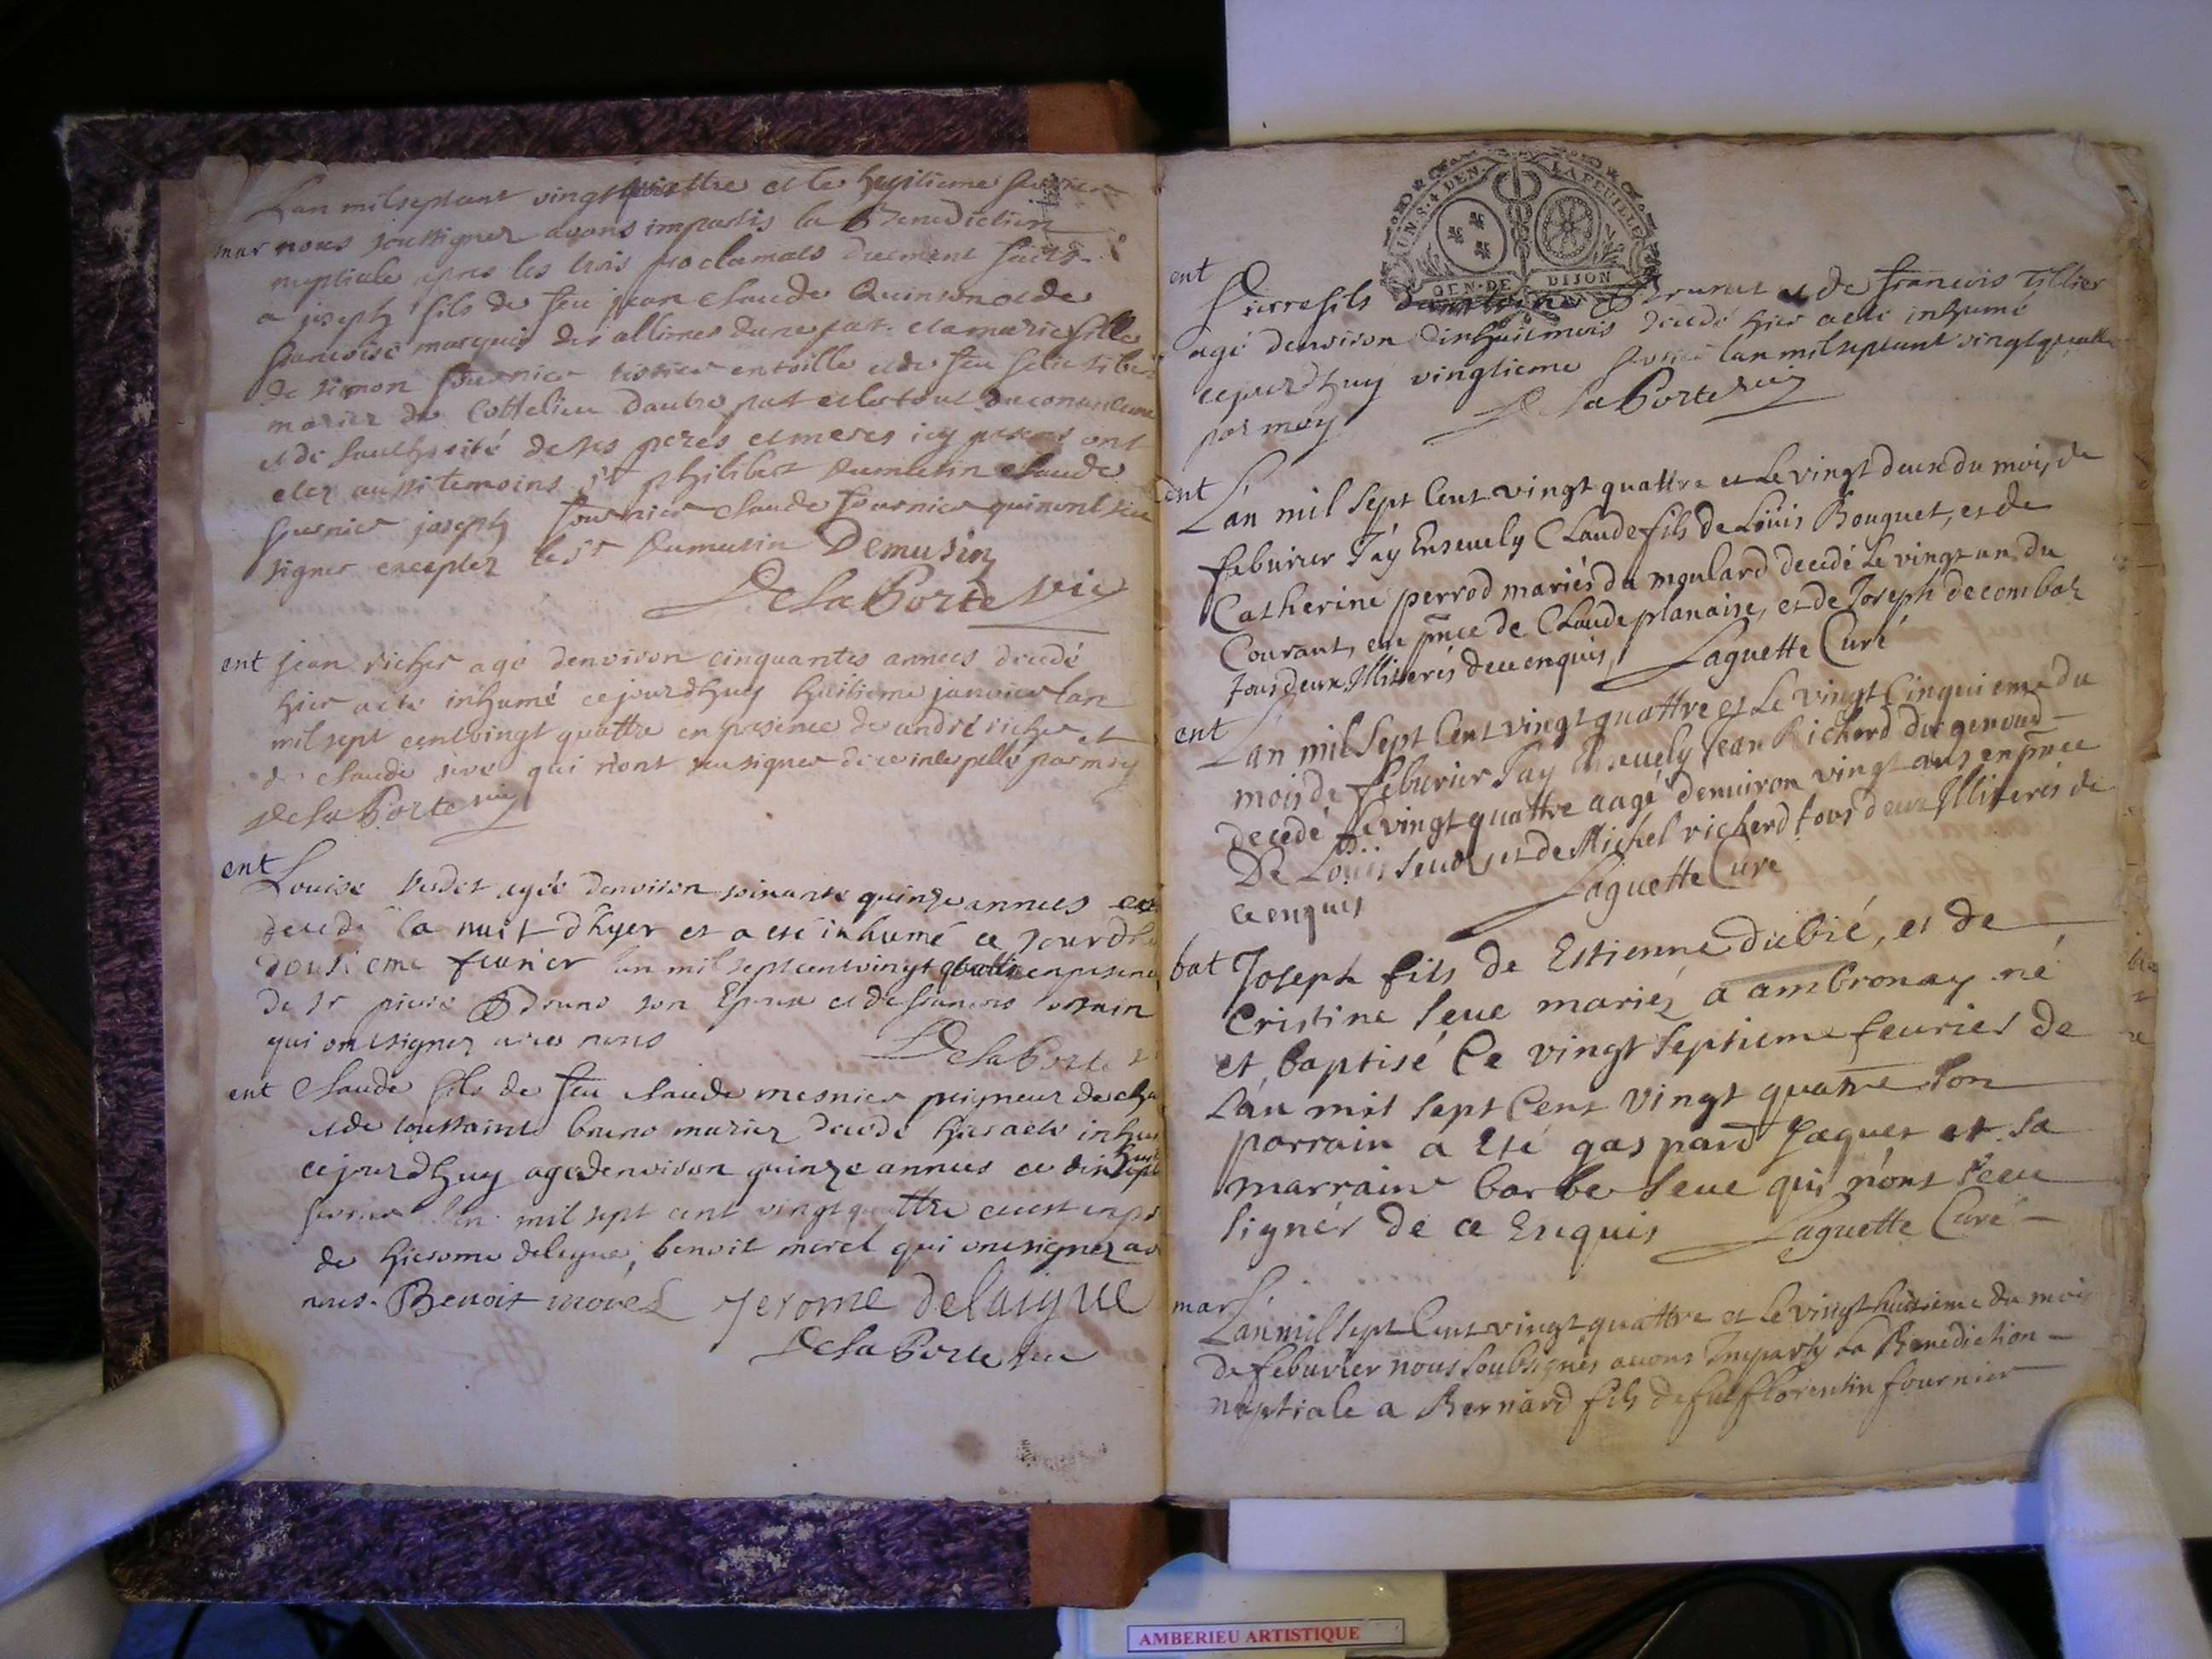 Lan mil sept cent vingt quattre et le huitieme fevrier
mar nous soussignez avons impartis la Benediction
nuptiale apres les trois proclamats duement faits
a joseph fils de feu jean claude Quinson et de
francoise marquis des allimes dune part et a marie fille
de simon fournier tissier en toille et de feu
mariez de Cottelieu dautre part et le tout
et de lauthorité de ses peres et meres icy presens ont
etez aussi temoins sr philibert dumusin claude
fournier joseph fournier claude fournier qui nont sceu
signer exceptez le sr dumusin Demusin
De La Porte vic
ent jean richer agé denviron cinquantes annees decedé
hier a ete inhumé ce jourdhuy huitieme janvier lan
mil sept cent vingt quattre en presence de andré richer et
de claude seve qui n'ont sceu signer de ce interpellé par moy
De La Porte vic
ent
Louise Verdet agée denviron soixante quinze annees est
decedé la nuit dhyer et a esté inhumé ce jourdhuy
dousieme feurier lan mil sept cent vingt quattre en presence
de sr pierre Bruno son Epoux et de francois
qui ont signez avec nous
De La Porte
ent Claude fils de feu claude mesnier peigneur de
et de toussaint bruno mariez decedé hier a ete inhumé
ce jourdhuy agé denviron quinze annees ce dix huit
fevrier lan mil sept cent vingt quattre
de hierome delegue, benoit morel qui ont signez
nous. Benoit morel Jerome delaigue
De La Porte vic
UN. S. 4 DEN. LA FEUILLE
GEN. DE DIJON
ent
Pierre fils Brunet et de francois Tillier
agé denviron dix huit mois decedé hier a ete inhumé
ce jourdhuy vingtieme fevrier lan mil sept cent vingt quattre
par moy De La Porte vic
ent Lan mil sept Cent vingt quattre et Le vingt deux du mois de
feburier J'ay Enseuely Claude fils de Loüis Bouquet, et de
Catherine perrod mariés du moulard decedé Le vingt un du
Courant, en pnce de Claude planaise, et de Joseph decombaz
tous deux Illiterés de ce enquis Laguette Curé
ent Lan mil Sept Cent vingt quattre et Le vingt Cinquieme du
mois de feburier J'ay Enseuely Jean Richerd du genoud
decedé Le vingt quattre aagé denuiron vingt ans en pnce
De Loüis Seuoz et de Michel richerd tous deux Illiterés de
ce enquis Laguette Curé
bat Joseph fils de Estienne dubié, et de
Cristine Seue mariéz a ambronay né
et baptisé Ce vingt septieme feurier de
L'an mil sept Cent vingt quatre son
parrain a Eté gaspard Jaquet et sa
marraine barbe Seue qui n'ont sceu
signer de ce Enquis Laguette Curé
mar Lan mil sept Cent vingt quattre et Le vingt huitieme du mois
de feburier nous soubsignés auons Imparty La Benediction
nuptiale a Bernard fils de feu florentin fournier
AMBERIEU ARTISTIQUE